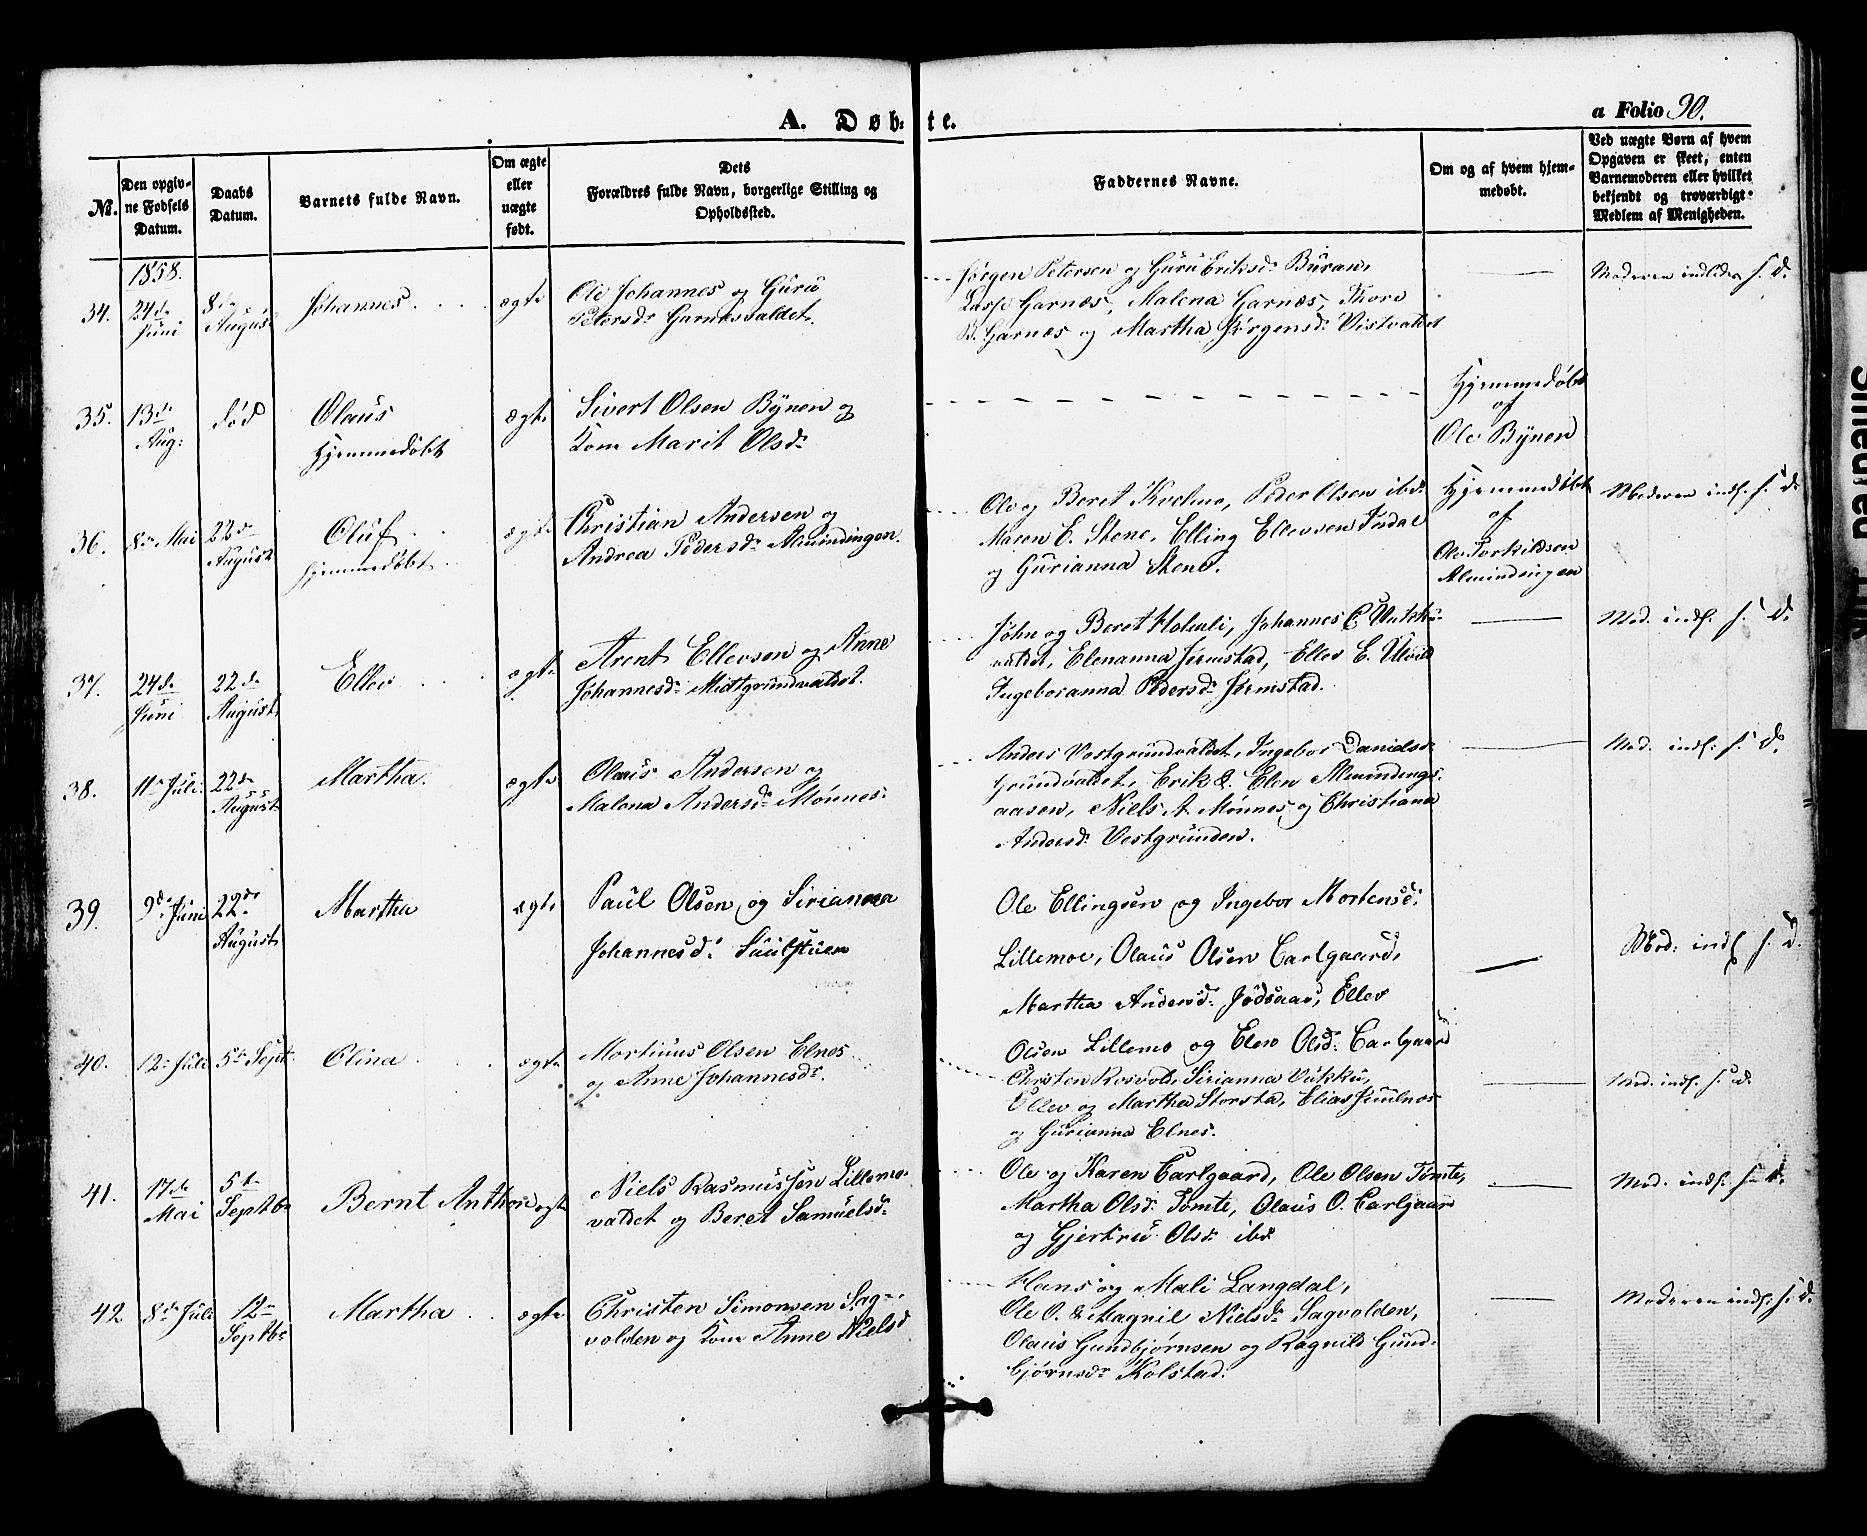 A. Døb- te.
a Folio 90.
№.
Den opgiv-
ne Fødsels
Datum.
Daabs
Datum.
Barnets fulde Navn.
Om ægte
eller
uægte
født.
Dets
Forældres fulde Navn, borgerlige Stilling og
Opholdssted.
Faddernes Navne.
Om og af hvem hjem-
medøbt.
Ved uægte Børn af hvem
Opgaven er skeet, enten
Barnemoderen eller hvilket
bekjendt og troværdigt
Medlem af Menigheden.
1858.
34. 24de Juni
8de August
Johannes
ægte
Ole Johannes og Guru
Petersdr Garnæsvaldet.
Jørgen Petersen og Guru Eriksdr Buran,
Lasse Garnæs, Malena Garnæs, Thore
B. Garnæs og Martha Jørgensdr Vistvaldet
Moderen indleder s. d.
35. 13de Aug:
død
Olaus
Hjemmedøbt
ægte
Sivert Olsen Bÿnen og
Kone Marit Olsdr
Hjemmedøbt
af
Ole Bÿnen
36. 8de Mai
22de August
Oluf
hjemmedøbt
ægte
Christian Andersen og
Andrea Pedersdr Almindingen.
Ole og Beret Kvelmo, Peder Olsen ibd.
Maren E. Stene, Elling Ellevsen Indal
og Gurianna Stene.
Hjemmedøbt
af
Ole Torkildsen
Almindingen
Moderen indl. s. d.
37. 24de Juni
22de August
Ellev
ægte
Arent Ellevsen og Anne
Johannesdr Midtgrundvaldet.
John og Beret Holmli, Johannes E Vukku-
valdet, Elenanna Jermstad, Ellev E. Ulvild
Ingeboranna Pedersdr Jermstad.
Mod. indl. s. d.
38. 11te Juli
22de August
Martha.
ægte
Olaus Andersen og
Malena Andersdr Mönnes.
Anders Vestgrundvaldet, Ingebor Danielsdr
Grundvaldet, Erik & Elen Almindings-
aasen, Niels A. Mönnes og Christiana
Andersdr Vestgrunden.
Mod. indl. s. d.
39. 9de Juni
22de August
Martha
ægte
Paul Olsen og Sirianna
Johannesd:
Ole Ellingsen og Ingebor Mortensd:
Lillemoe, Olaus Olsen Carlgaard,
Martha Andersd: Jødsaas, Ellev
Olsen Lillemo og Elen Olsd: Carlgaard
Mod: indl s. d.
40. 12te Juli
5te Sept.
Olina
ægte
Mortinus Olsen Elnes
og Anne Johannesdr.
Christen Rosvold, Sirianna Vukku,
Ellev og Martha Storstad, Elias Juulnes
og Gurianna Elnes.
Mod. indl. s. d.
41. 17de Mai
5te Septbr
Bernt Anthon
ægte
Niels Rasmussen Lillemo-
valdet og Beret Samuelsdr
Ole og Karen Carlgaard, Ole Olsen Tomte,
Martha Olsdr Tomte, Olaus O. Carlgaard
og Gjertru Olsdr ibd
Mod. indl. s. d.
42 8de Juli
12te Septbr
Martha
ægte
Christen Simonsen Sag-
volden og Kone Anne Nielsd
Hans og Mali Langdal,
Ole O. & Magnil Nielsdr Sagvolden,
Olaus Gundbjørnsen og Ragnild Gund-
bjørnsdr Kolstad.
Moderen indl. s. d.